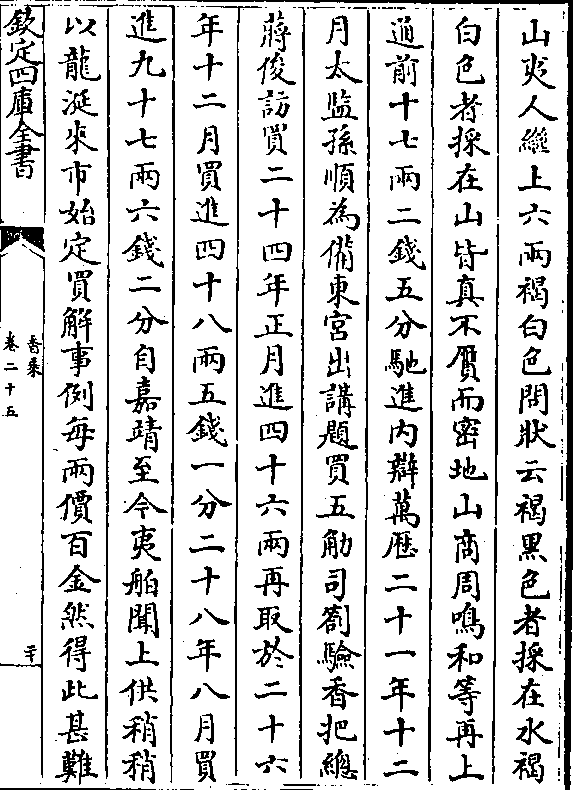 山夷人繼上六兩褐白色問狀云褐黒色者採在水褐
白色者採在山皆真不贗而密地山商周鳴和等再上
通前十七兩二錢五分馳進内辦萬厯二十一年十二
月太監孫順為備東宮出講題買五觔司劄驗香把總
蔣俊訪買二十四年正月進四十六兩再取於二十六
年十二月買進四十八兩五錢一分二十八年八月買
進九十七兩六錢二分自嘉靖至今夷舶聞上供稍稍
以龍涎來市始定買解事例每兩價百金然得此甚難
欽定四庫全書
香乘
卷二十五
二十